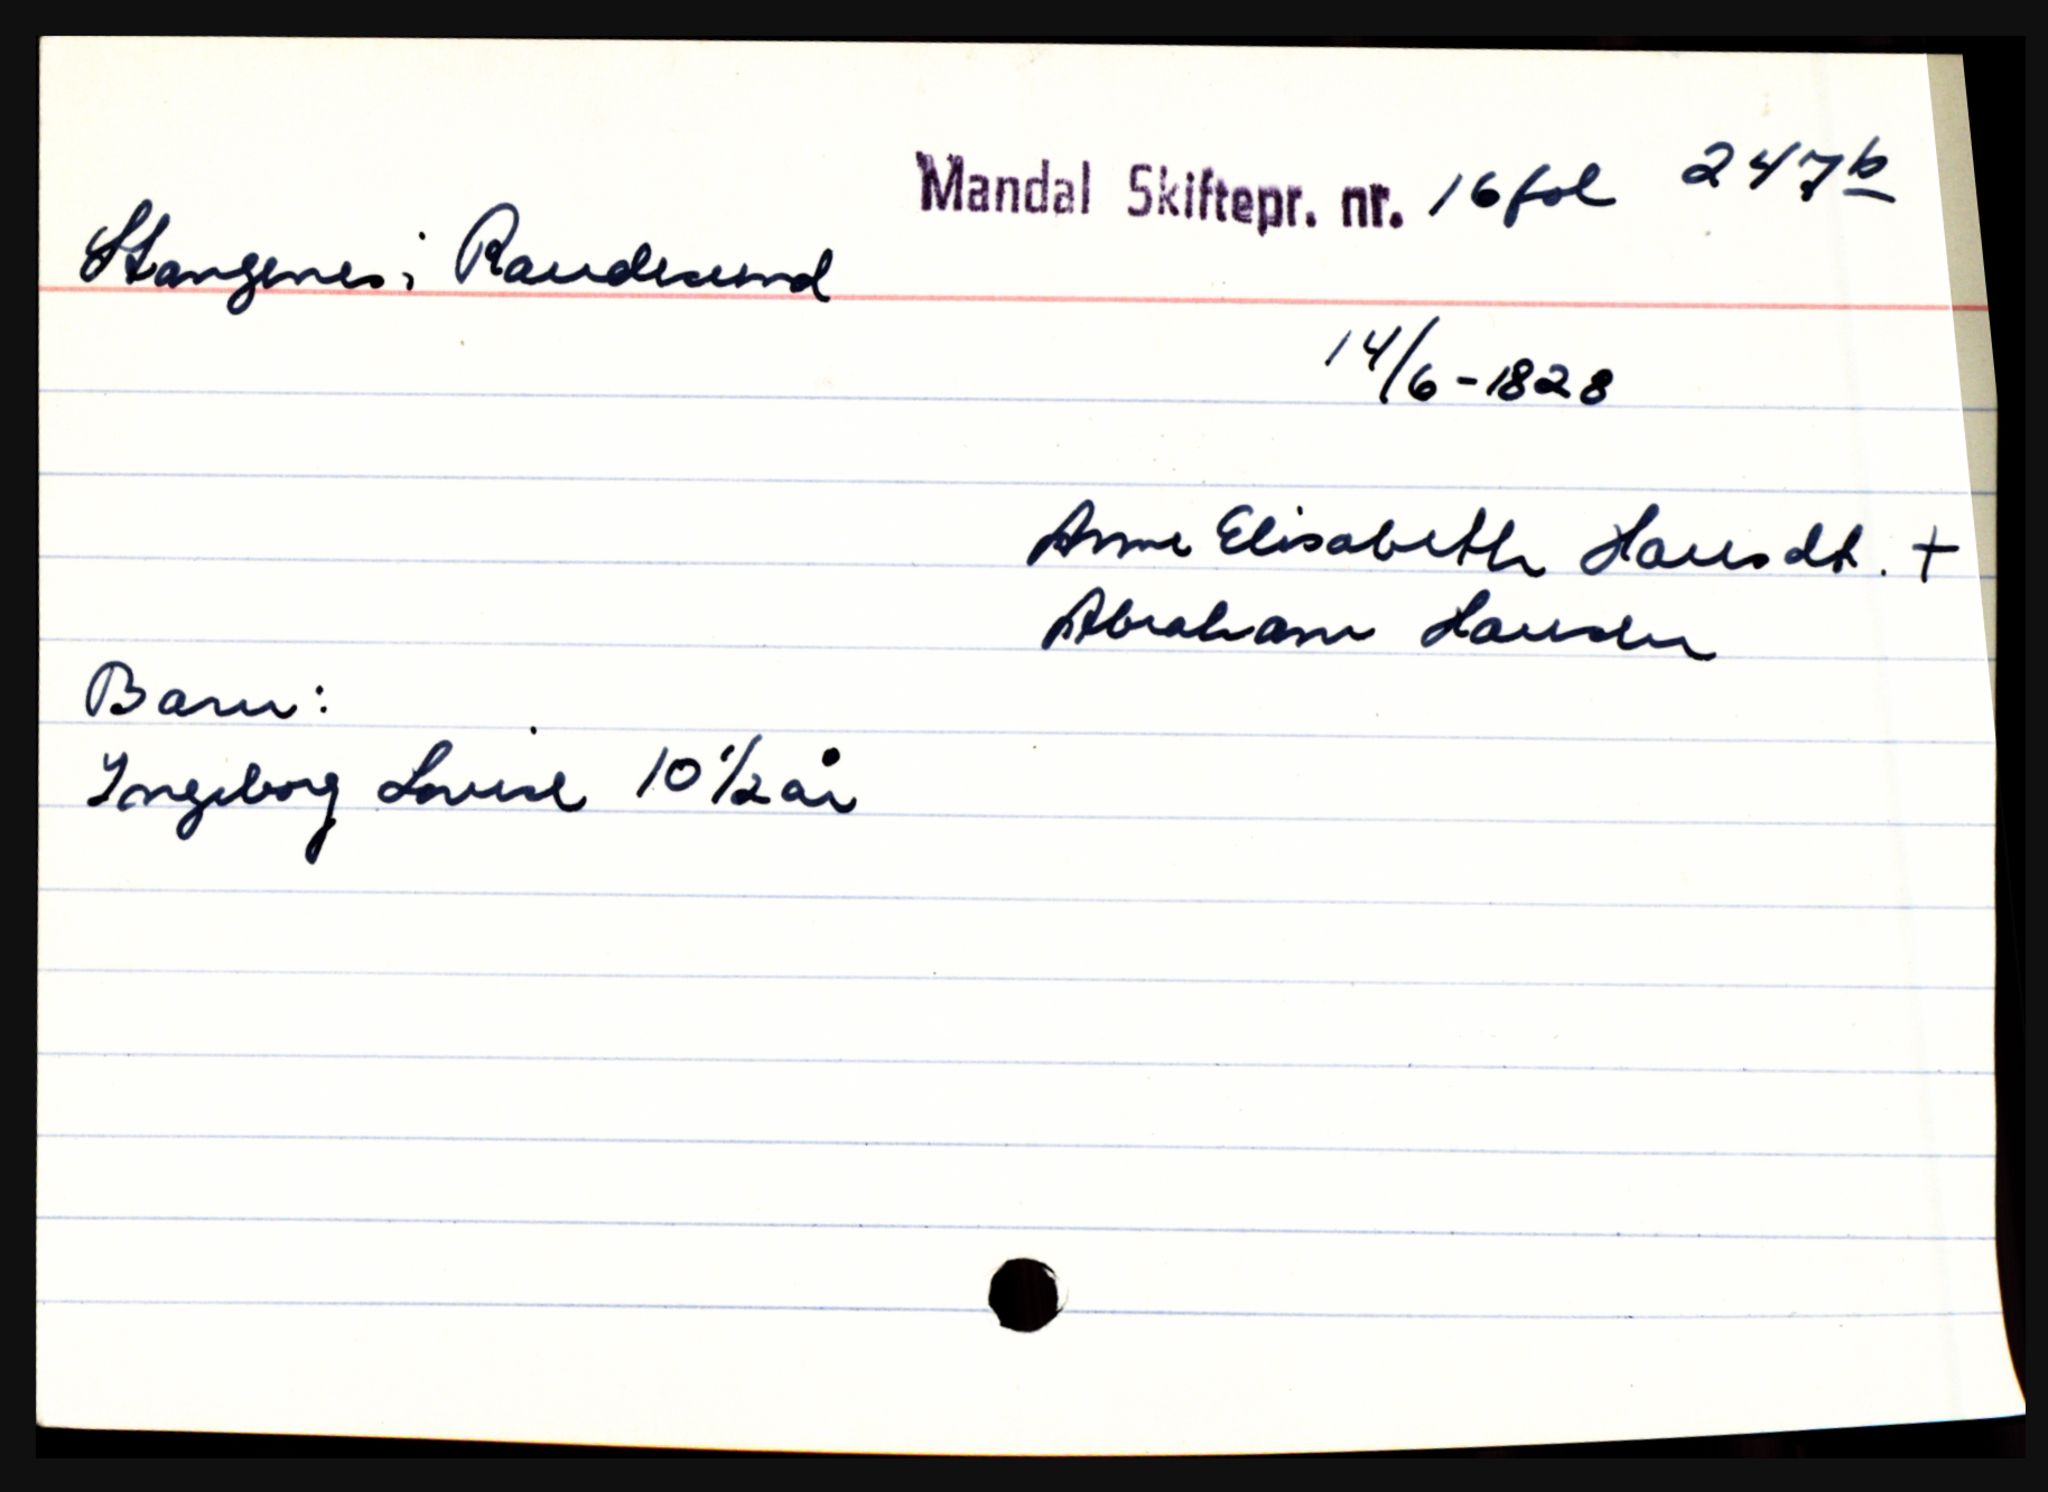 Mandal Skiftepr. nr. 16 fol 247b
Stangenes i Randesund
14/6-1828
Anne Elisabeth Hansdt. +
Abraham Hansen
Barn:
Ingeborg Lovise 10 1/2 år